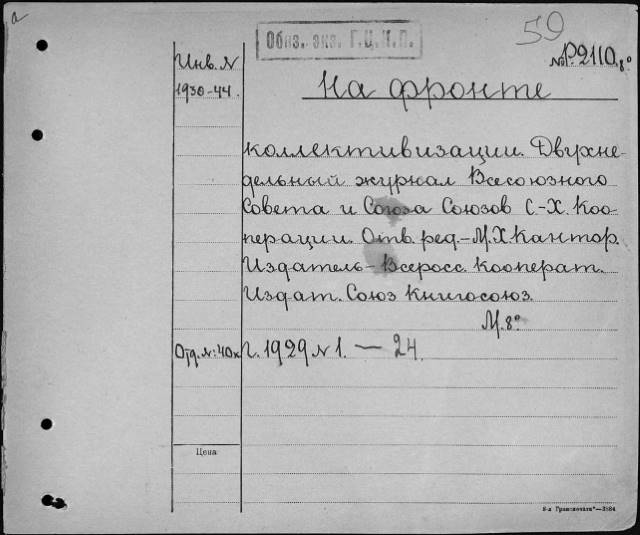 а
59
Обяз. экз. Г.Ц.К.П.
№Р2110 8°
Инв. N
1930-44.
На фронте
коллективизации. Двухне-
дельный журнал Всесоюзного
Совета и Союза Союзов С-Х. Коо-
перации. Отв. ред.-М.Х Кантор.
Издатель-Всеросс. кооперат.
Издат. Союз Книгосоюз.
М. 8°
Отд. №: 40к
Г. 1929 N 1. — 24.
Цена